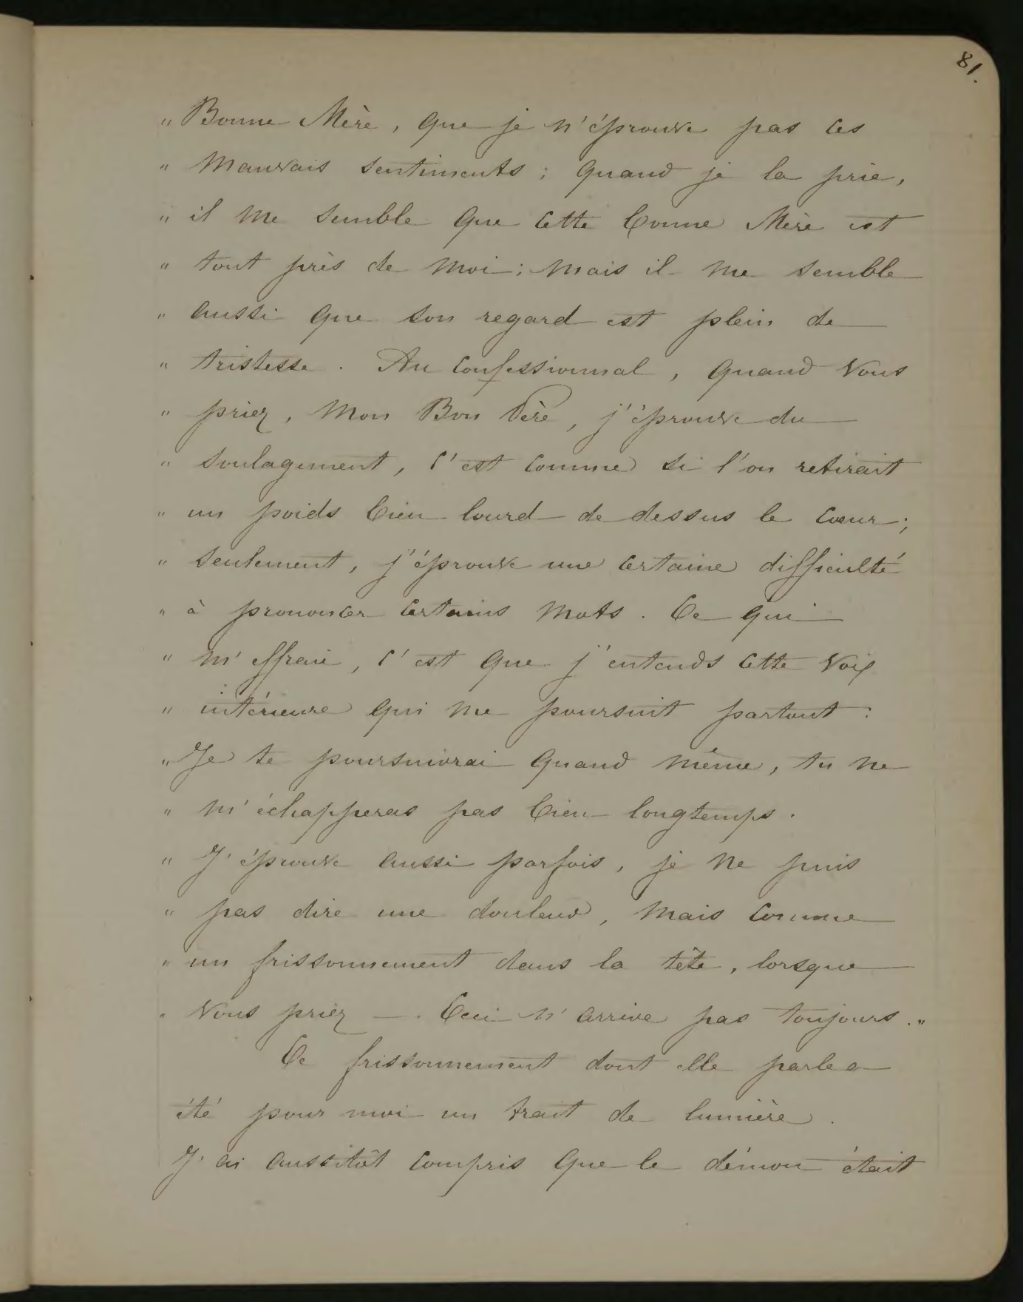 81.
" Bonne Mère, que je n'éprouve pas ces
" mauvais sentiments ; quand je la prie,
" il me semble que cette bonne Mère est
" tout près de moi ; mais il me semble
" aussi que son regard est plein de
" tristesse. Au confessionnal, quand vous
" priez, mon Bon Père, j'éprouve du
" soulagement, c'est comme si l'on retirait
" un poids bien lourd de dessus le cœur ;
" seulement, j'éprouve une certaine difficulté
" à prononcer certains mots. Ce qui
" m'effraie, c'est que j'entends cette voix
" intérieure qui me poursuit partout :
" Je te poursuivrai quand même, tu ne
" m'échapperas pas bien longtemps.
" J'éprouve aussi parfois, je ne puis
" pas dire une douleur, mais comme
" un frissonnement dans la tête, lorsque
" vous priez —. Ceci n'arrive pas toujours. "
Ce frissonnement dont elle parle a
été pour moi un trait de lumière.
J'ai aussitôt compris que le démon était